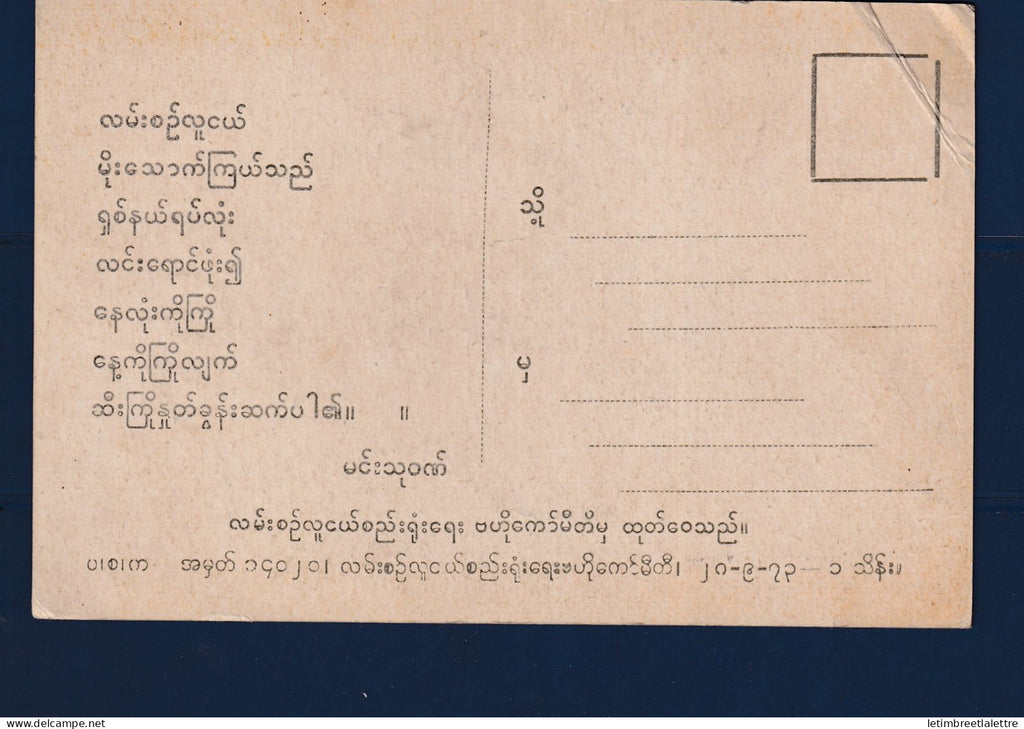 လမ်းစဉ်လူငယ်
မိုးသောက်ကြယ်သည်
ရှစ်နယ်ရပ်လုံး
လင်းရောင်ဖုံး၍
နေလုံးကိုကြို
နေ့ကိုကြိုလျက်
ဆီးကြိုနှုတ်ခွန်းဆက်ပါ၏။ ။
မင်းသုဝဏ်
သို့
မှ
လမ်းစဉ်လူငယ်စည်းရုံးရေး ဗဟိုကော်မီတီမှ ထုတ်ဝေသည်။
ပ၊စ၊က အမှတ် ၁၄၀၂၀၊ လမ်းစဉ်လူငယ်စည်းရုံးရေးဗဟိုကော်မီတီ၊ ၂၈-၉-၇၃ — ၁ သိန်း။
My-front-site.com
letimbreetlalettre